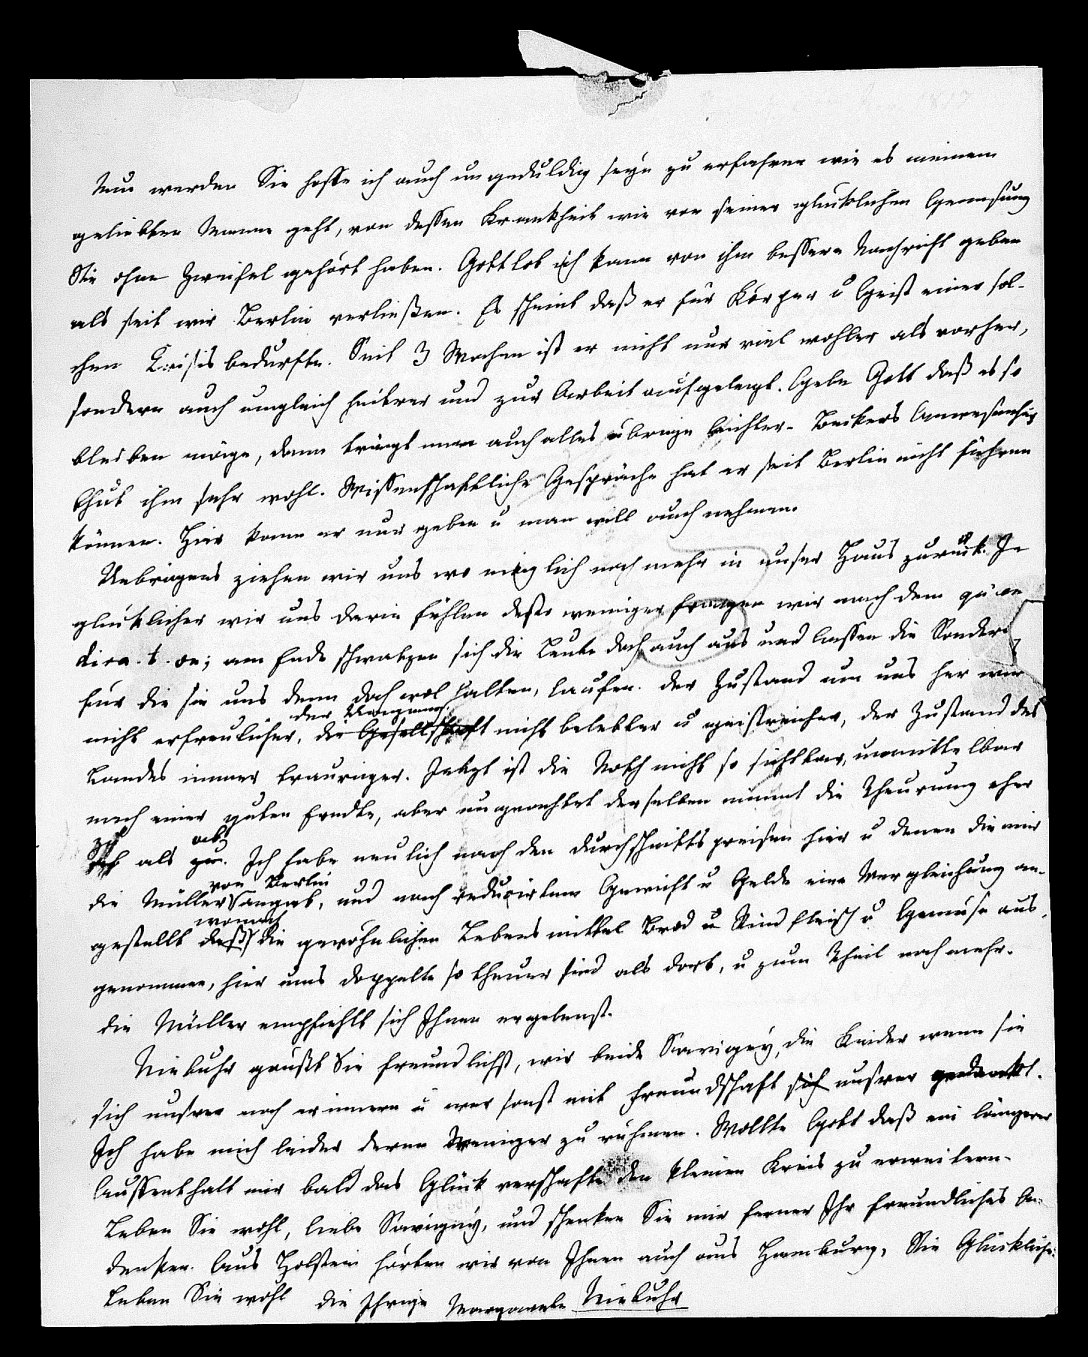 Nun werden Sie hoffe ich auch ungeduldig seyn zu erfahren wie es meinem
geliebten Manne geht, von dessen Krankheit wie von seiner glücklichen Genesung
Sie ohne Zweifel gehört haben. Gottlob ich kann von ihm bessere Nachricht geben
als seit wir Berlin verließen. Es scheint daß er für Körper u Geist einer sol-
chen Krisis bedurfte. Seit 3 Wochen ist er nicht nur viel wohler als vorher,
sondern auch ungleich heitrer und zur Arbeit aufgelegt. Gebe Gott daß es so
bleiben möge, dann trägt man auch alles übrige leichter. Bekkers Anwesenheit
thut ihm sehr wohl. Wissenschaftliche Gespräche hat er seit Berlin nicht führen
können. Hier kann er nur geben u man will auch nehmen.
Uebrigens ziehen wir uns wo möglich noch mehr in unser Haus zurück. Je
glücklicher wir uns darin fühlen desto weniger fragen wir nach dem
am Ende schwatzen sich die Leute doch auch aus und lassen die Sonder
für die sie uns denn doch wol halten, laufen. Der Zustand um uns her wird
nicht erfreulicher, die Gesellschaft nicht belebter u geistreicher, der Zustand des
Landes immer trauriger. Jetzt ist die Noth nicht so sichtbar, unmittelbar
nach einer guten Erndte, aber ungeachtet derselben nimmt die Theurung eher
zu als ab. Ich habe neulich nach den Durchschnittspreisen hier u denen die mir
die Müller von Berlin angab, und nach reducirtem Gewicht u Gelde eine Vergleichung an-
gestellt wonach die gewöhnlichen Lebensmittel Brod u Rindfleisch u Gemüse aus-
genommen, hier ums doppelte so theuer sind als dort, u zum Theil noch mehr.
Die Müller empfiehlt sich Ihnen ergebenst.
Niebuhr grüßt Sie freundlichst, wir beide Savigny, die Kinder wenn sie
sich unsrer noch erinnern u wer sonst mit Freundschaft sich unsrer gedenkt.
Ich habe mich leider deren Weniger zu rühmen. Wollte Gott daß ein längerer
Aussenthalt mir bald das Glück verschafte den kleinen Kreis zu erweitern.
Leben Sie wohl, liebe Savigny, und schenken Sie mir ferner Ihr freundliches An-
denken. Aus Holstein hörten wir von Ihnen auch aus Hamburg, Sie Glückliche.
Leben Sie wohl die Ihrige Margarete Niebuhr